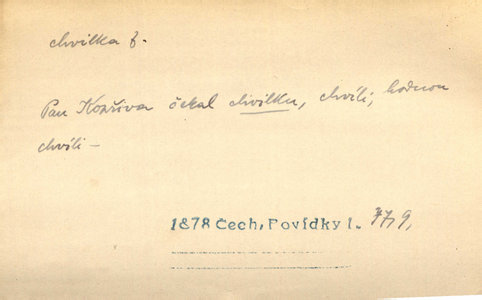 chvilka f.
Pan Kopřiva čekal chvilku, chvíli, hodnou
chvíli –
1878 Čech, Povídky I. 77, 9,